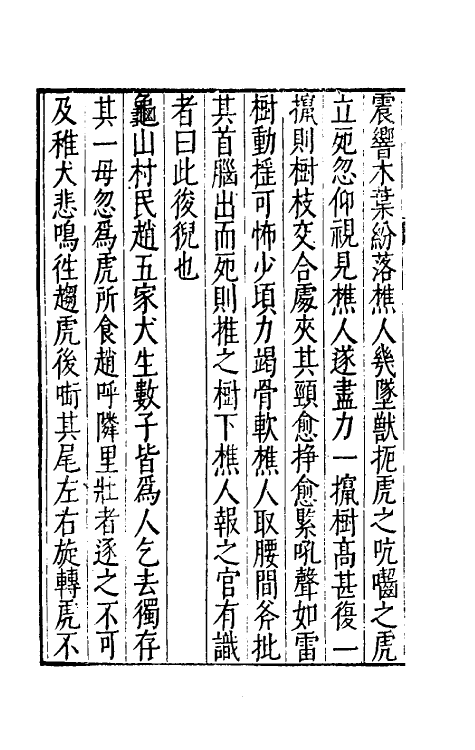 震響木葉紛落樵人幾墜獸扼虎之吭囓之虎
立死忽仰視見樵人遂盡力一攛樹高甚復一
攛則樹枝交合處夾其頸愈掙愈緊吼聲如雷
樹動搖可怖少頃力竭骨軟樵人取腰間斧批
其首腦出而死則推之樹下樵人報之官有識
者曰此狻猊也
龜山村民趙五家犬生數子皆為人乞去獨存
其一母忽為虎所食趙呼隣里壯者逐之不可
及稚犬悲鳴徃趨虎後嚙其尾左右旋轉虎不